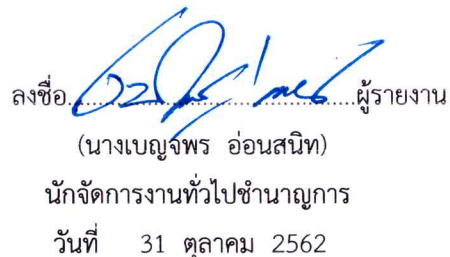 ลงชื่อ....................ผู้รายงาน
(นางเบญจพร อ่อนสนิท)
นักจัดการงานทั่วไปชำนาญการ
วันที่ 31 ตุลาคม 2562